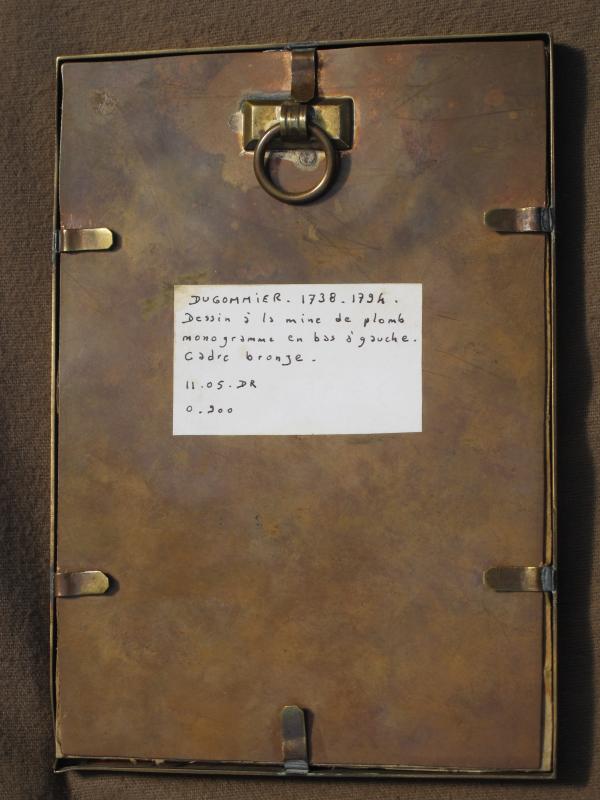 DUGOMMIER. 1738.1794.
Dessin à la mine de plomb
monogramme en bas à gauche.
Cadre bronze.
11.05.DR
0.200